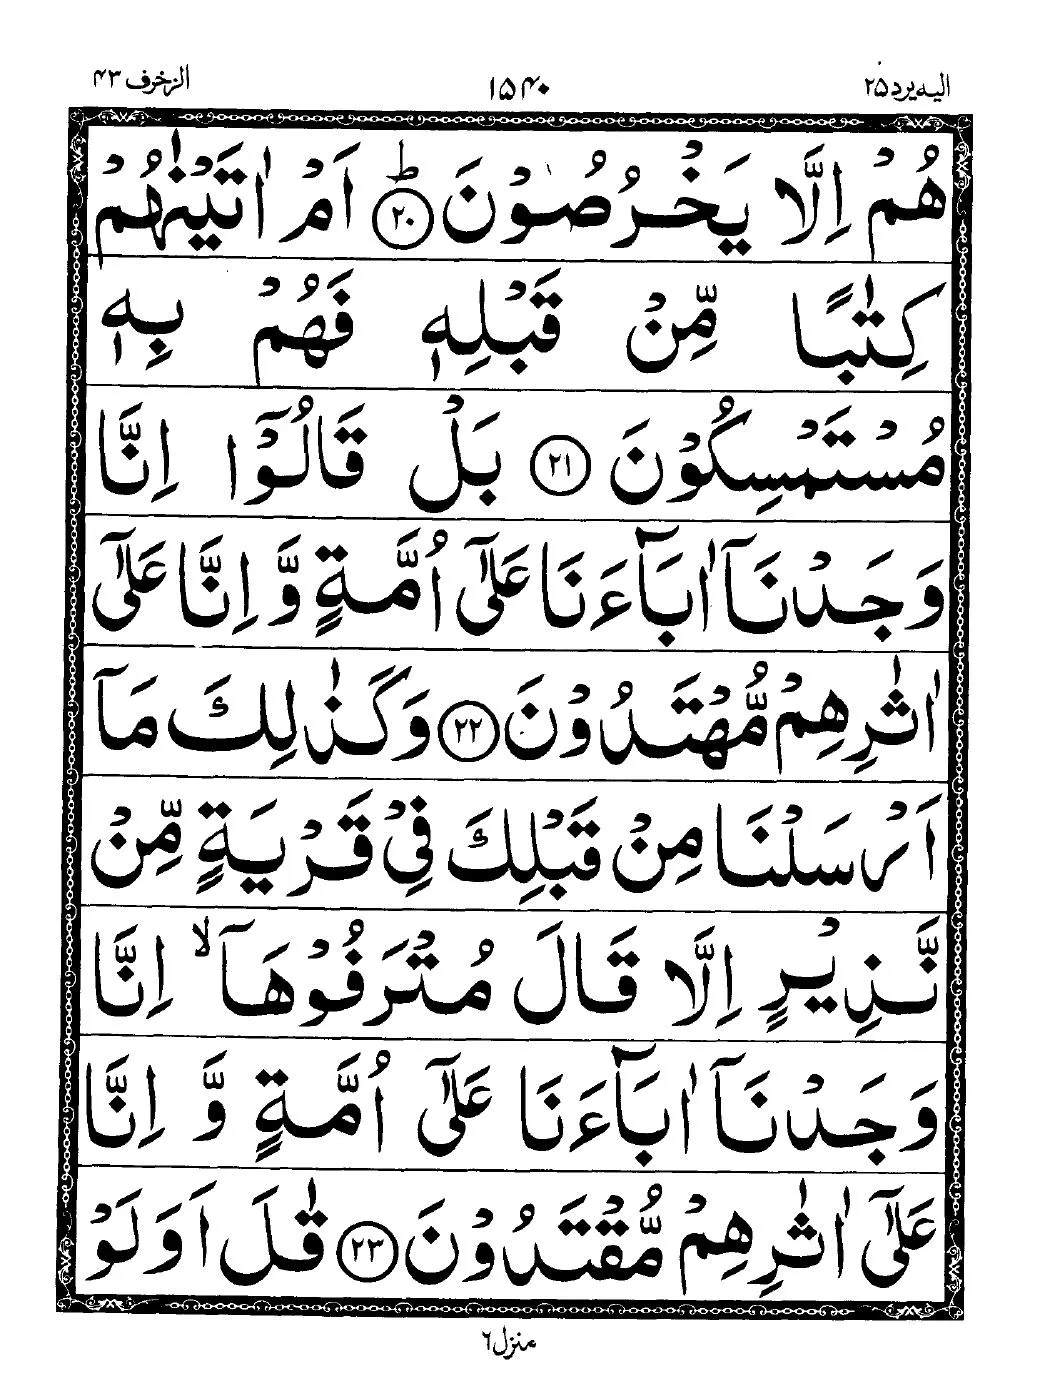 الیه یرد ۲۵
۱۵۴۰
الزخرف ۴۳
هُمْ اِلَّا یَخْرُصُوْنَ ؕ﴿۲۰﴾ اَمْ اٰتَیْنٰهُمْ
كِتٰبًا مِّنْ قَبْلِهٖ فَهُمْ بِهٖ
مُسْتَمْسِكُوْنَ ﴿۲۱﴾ بَلْ قَالُوْۤا اِنَّا
وَجَدْنَاۤ اٰبَآءَنَا عَلٰۤی اُمَّةٍ وَّ اِنَّا عَلٰۤی
اٰثٰرِهِمْ مُّهْتَدُوْنَ ﴿۲۲﴾ وَكَذٰلِكَ مَاۤ
اَرْسَلْنَا مِنْ قَبْلِكَ فِیْ قَرْیَةٍ مِّنْ
نَّذِیْرٍ اِلَّا قَالَ مُتْرَفُوْهَاۤ ۙ اِنَّا
وَجَدْنَاۤ اٰبَآءَنَا عَلٰۤی اُمَّةٍ وَّ اِنَّا
عَلٰۤی اٰثٰرِهِمْ مُّقْتَدُوْنَ ﴿۲۳﴾ قٰلَ اَوَلَوْ
منزل ۶